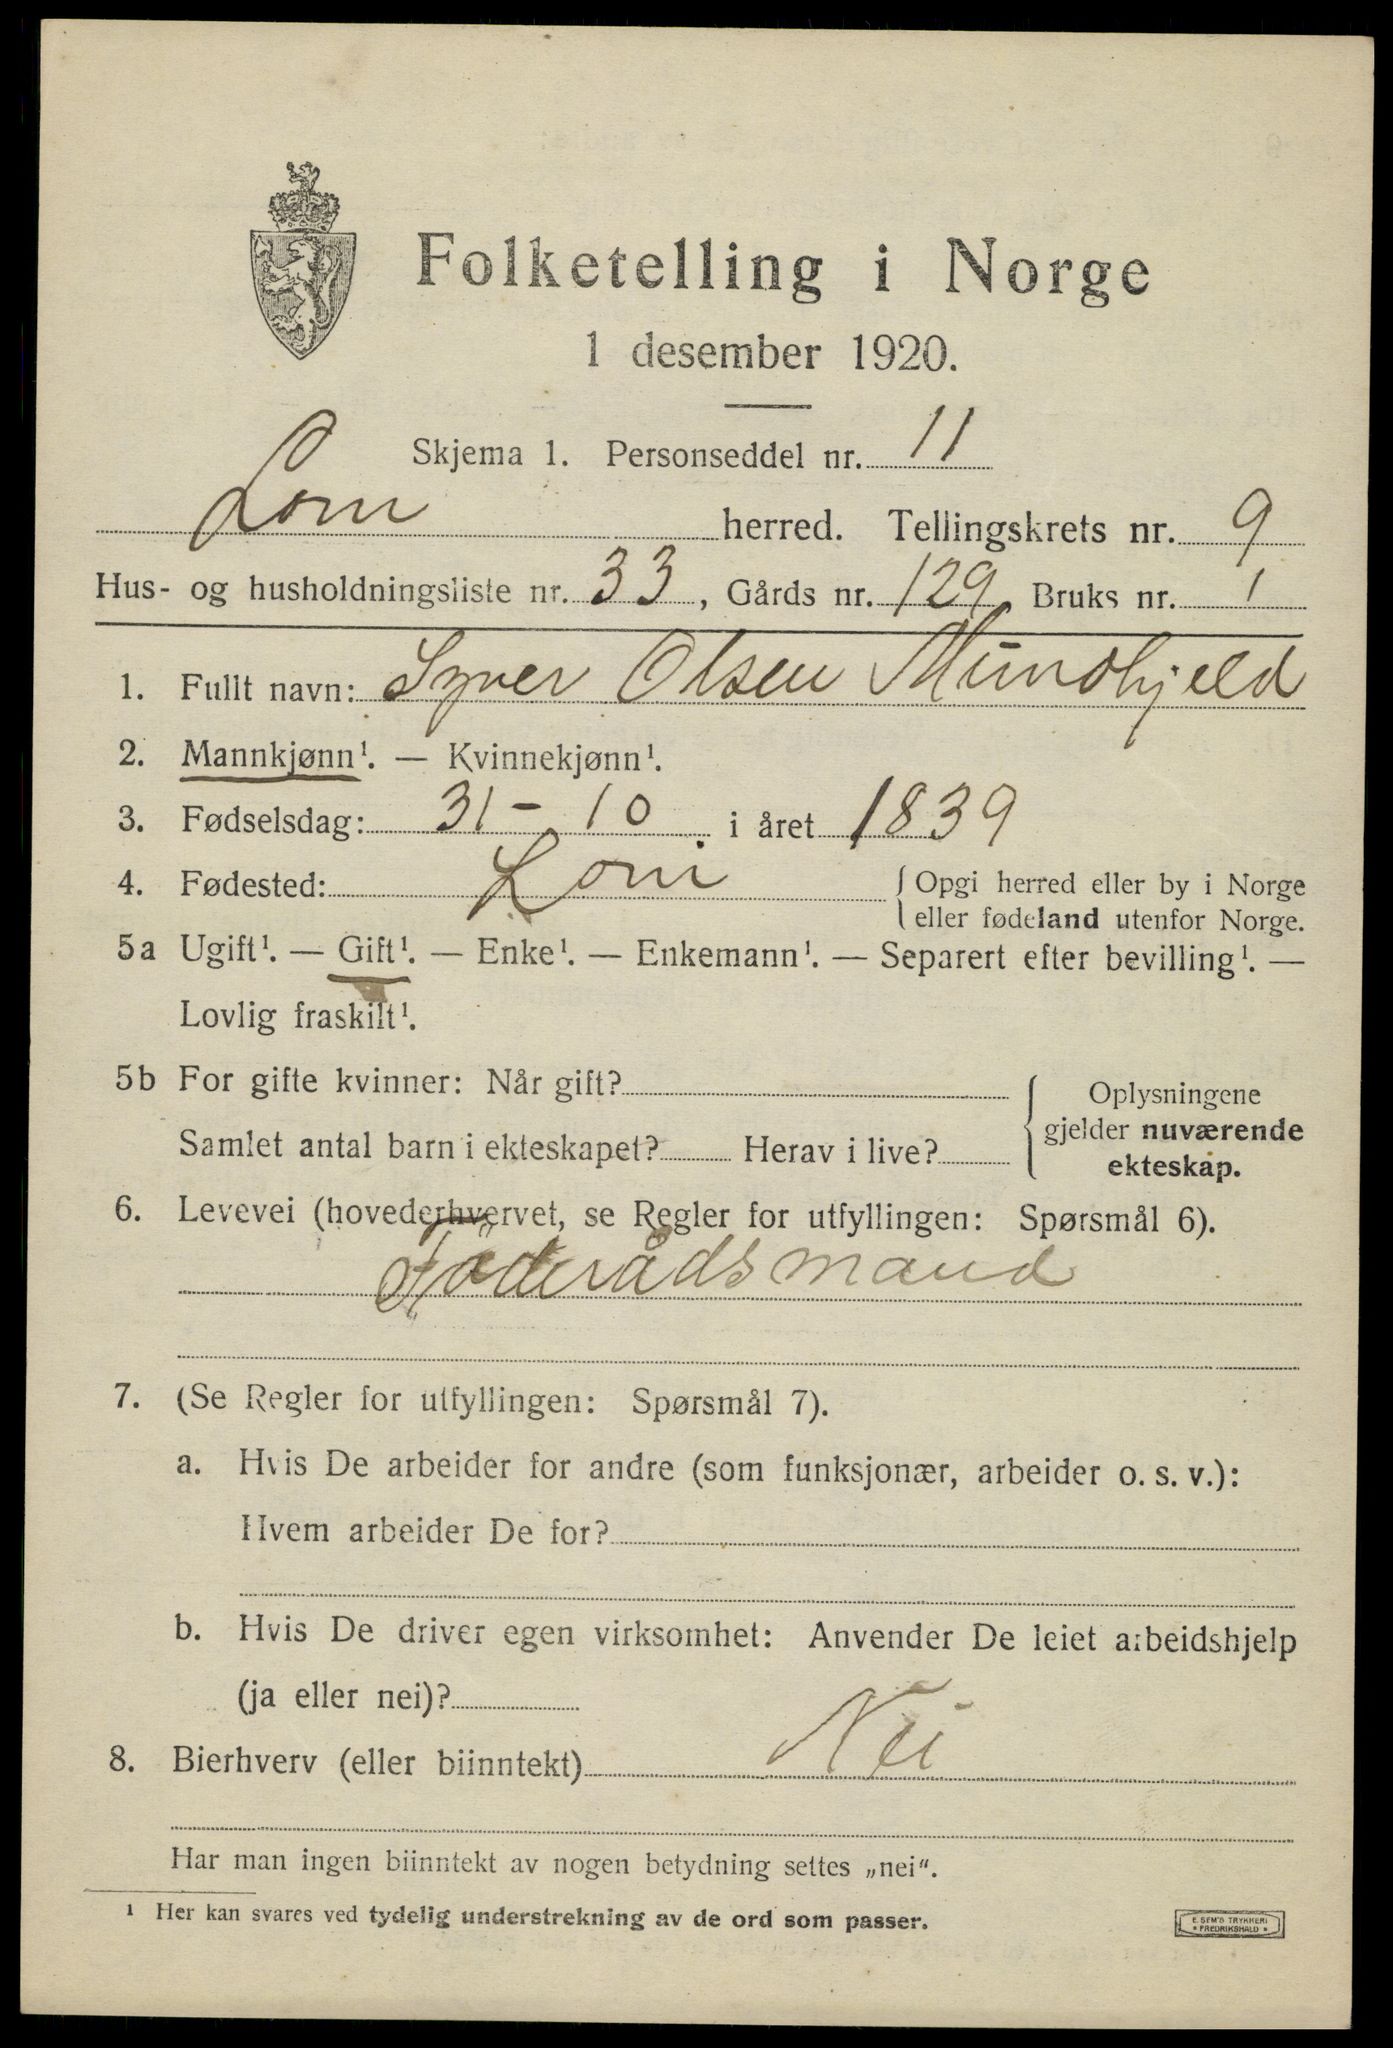 Folketelling i Norge
1 desember 1920.
Skjema 1. Personseddel nr. 11
Lom herred. Tellingskrets nr. 9
Hus- og husholdningsliste nr. 33, Gårds nr. 129 Bruks nr. 1
1. Fullt navn: Syver Olsen Mundhjeld
2. Mannkjønn¹. — Kvinnekjønn¹.
3. Fødselsdag: 31 - 10 i året 1839
4. Fødested: Lom { Opgi herred eller by i Norge
eller fødeland utenfor Norge.
5a Ugift¹. — Gift¹. — Enke¹. — Enkemann¹. — Separert efter bevilling¹. —
Lovlig fraskilt¹.
5b For gifte kvinner: Når gift?
Samlet antal barn i ekteskapet? Herav i live?
Oplysningene
gjelder nuværende
ekteskap.
6. Levevei (hovederhvervet, se Regler for utfyllingen: Spørsmål 6).
Føderådsmand
7. (Se Regler for utfyllingen: Spørsmål 7).
a. Hvis De arbeider for andre (som funksjonær, arbeider o. s. v.):
Hvem arbeider De for?
b. Hvis De driver egen virksomhet: Anvender De leiet arbeidshjelp
(ja eller nei)?
8. Bierhverv (eller biinntekt) Nei
Har man ingen biinntekt av nogen betydning settes „nei“.
¹ Her kan svares ved tydelig understrekning av de ord som passer.
E. SEM'S TRYKKERI
* FREDRIKSHALD *